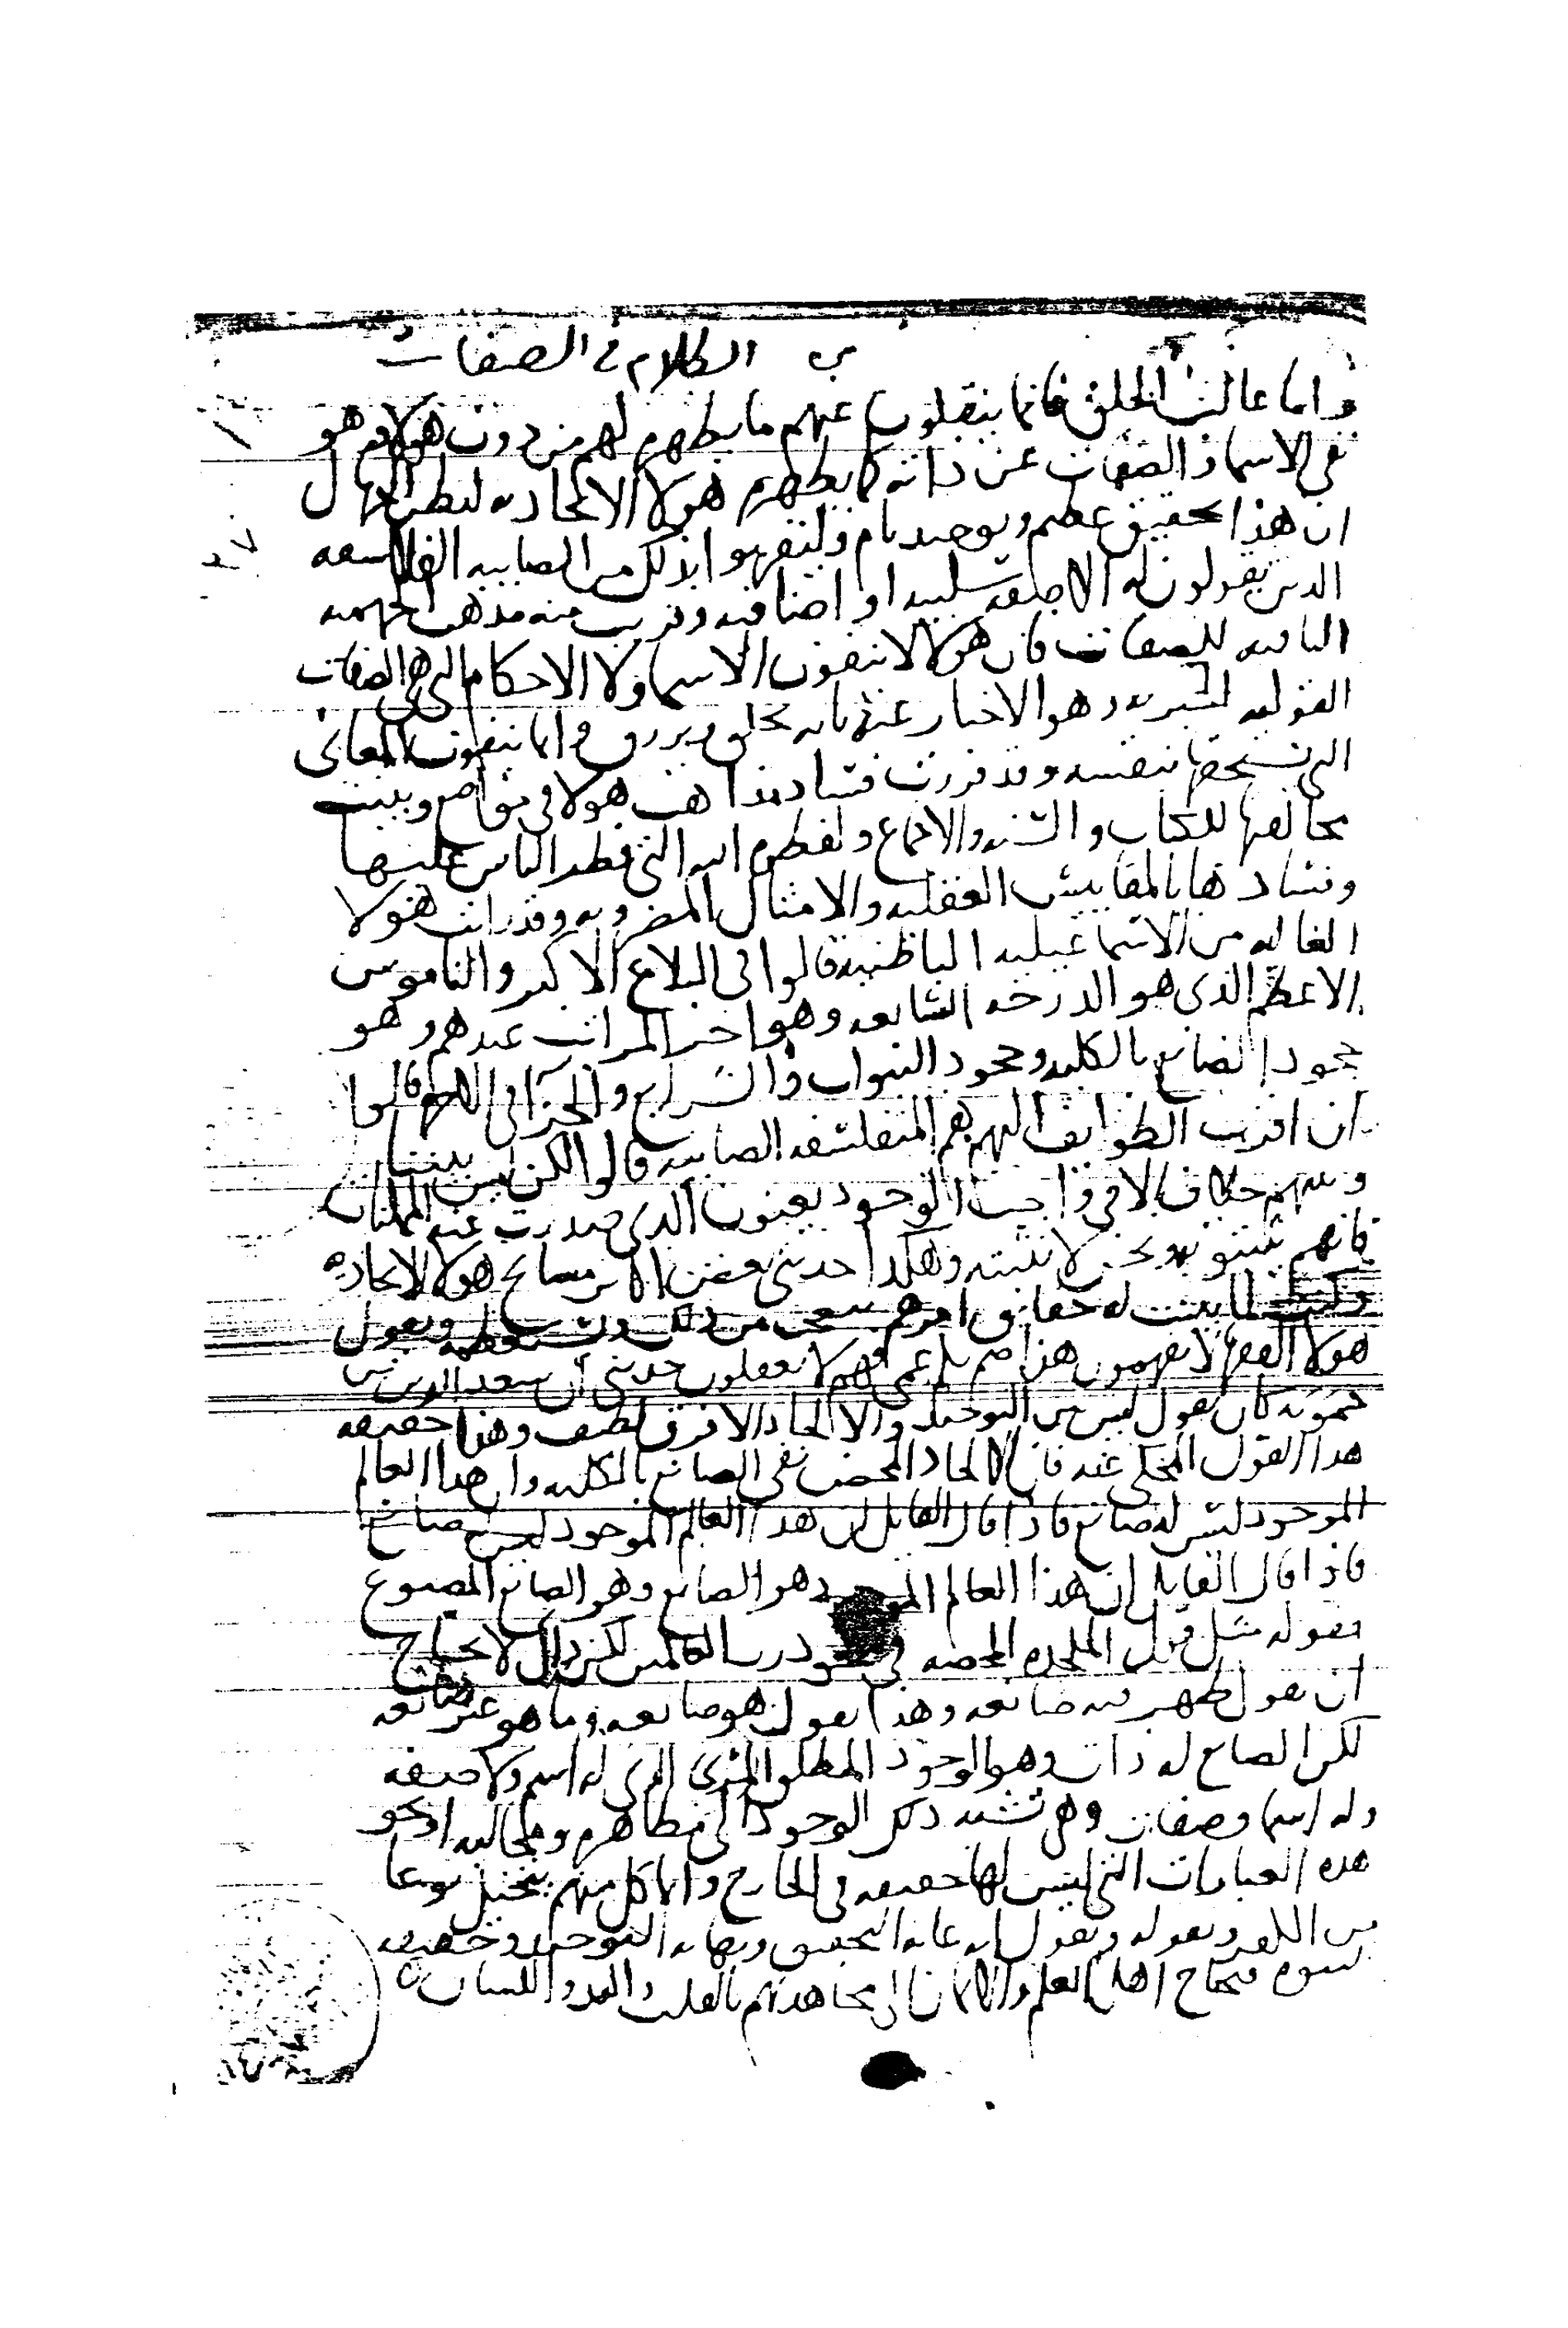 الكلام في الصفات
واما غالب الخلق فانما ينقلون عنهم ما يظهره لهم من دون هولا وهو
نفي الاسما والصفات عن ذاته كما يظهره هولا الاتحاديه ليظن الجهال
ان هذا تحقيق عظيم وتوحيد تام ولينفقهوا بذلك من الصابيه الفلاسفه
الذين يقولون له الا صفه سلبيه او اضافيه وقريب منه مذهب الجهميه
النافيه للصفات فان هولا لا ينفون الاسما ولا الاحكام التي هي الصفات
القوليه الخبريه وهو الاخبار عنه بانه يخلق ويرزق وانما ينفون المعاني
التي يستحقها بنفسه وقد قررت فساد مذاهب هولا في مواضع وبينت
مخالفها للكتاب والسنه والاجماع ولفطره الله التي فطر الناس عليها
وفسادها بالمقاييس العقليه والامثال المضروبه وقد رايت هولا
الغاليه من الاسماعيليه الباطنيه قالوا في البلاغ الاكبر والناموس
الاعظم الذي هو الدرجه السابعه وهو اخر المراتب عندهم وهو
جحود الصانع بالكليه وجحود النبوات والشرايع والجزا في الاخره قالوا
ان اقرب الطوايف اليهم هم المتفلسفه الصابيه قالوا لكن ليس بيننا
وبينهم خلاف الا في واجب الوجود يعنون الذي صدرت عنه الممكنات
فانهم يثبتونه ونحن لا نثبته وهكذا حدثني بعض اكابر مشايخ هولا الاتحاديه
وكنت لما بينت له حقايق امرهم يتعجب من ذلك ويستعظمه ويقول
هولا الفقها لا يفهمون هذا صم بكم عمي فهم لا يعقلون حدثني ان سعد الدين بن
حمويه كان يقول ليس بين التوحيد والالحاد الا فرق لطيف وهذا حقيقه
هذا القول المحكي عنه فان الالحاد المحض نفي الصانع بالكليه وان هذا العالم
الموجود ليس له صانع فاذا قال القايل ان هذا العالم الموجود ليس صانع
فاذا قال القايل ان هذا العالم الموجود هو الصانع وهو الصانع المصنوع
فقوله مثل قول الملحده المحضه في جحود رب العالمين لكن ذاك لا يحتاج
ان يقول ظهر فيه صانعه وهذا يقول هو صانعه وما هو غير صانعه
لكن الصانع له ذات وهو الوجود المطلق الذي له اسم ولا صفه
وله اسما وصفات وهي نسبه ذلك الوجود الى مظاهره ومجاليه او نحو
هذه العبارات التي ليس لها حقيقه في الخارج وانما كل منهم يتخيل نوعا
من الكفر ويقوله ويقول انه غايه التحقيق ونهايه التوحيد وحقيقه
فيحتاج اهل العلم والايمان الى مجاهدتهم بالقلب واليد واللسان